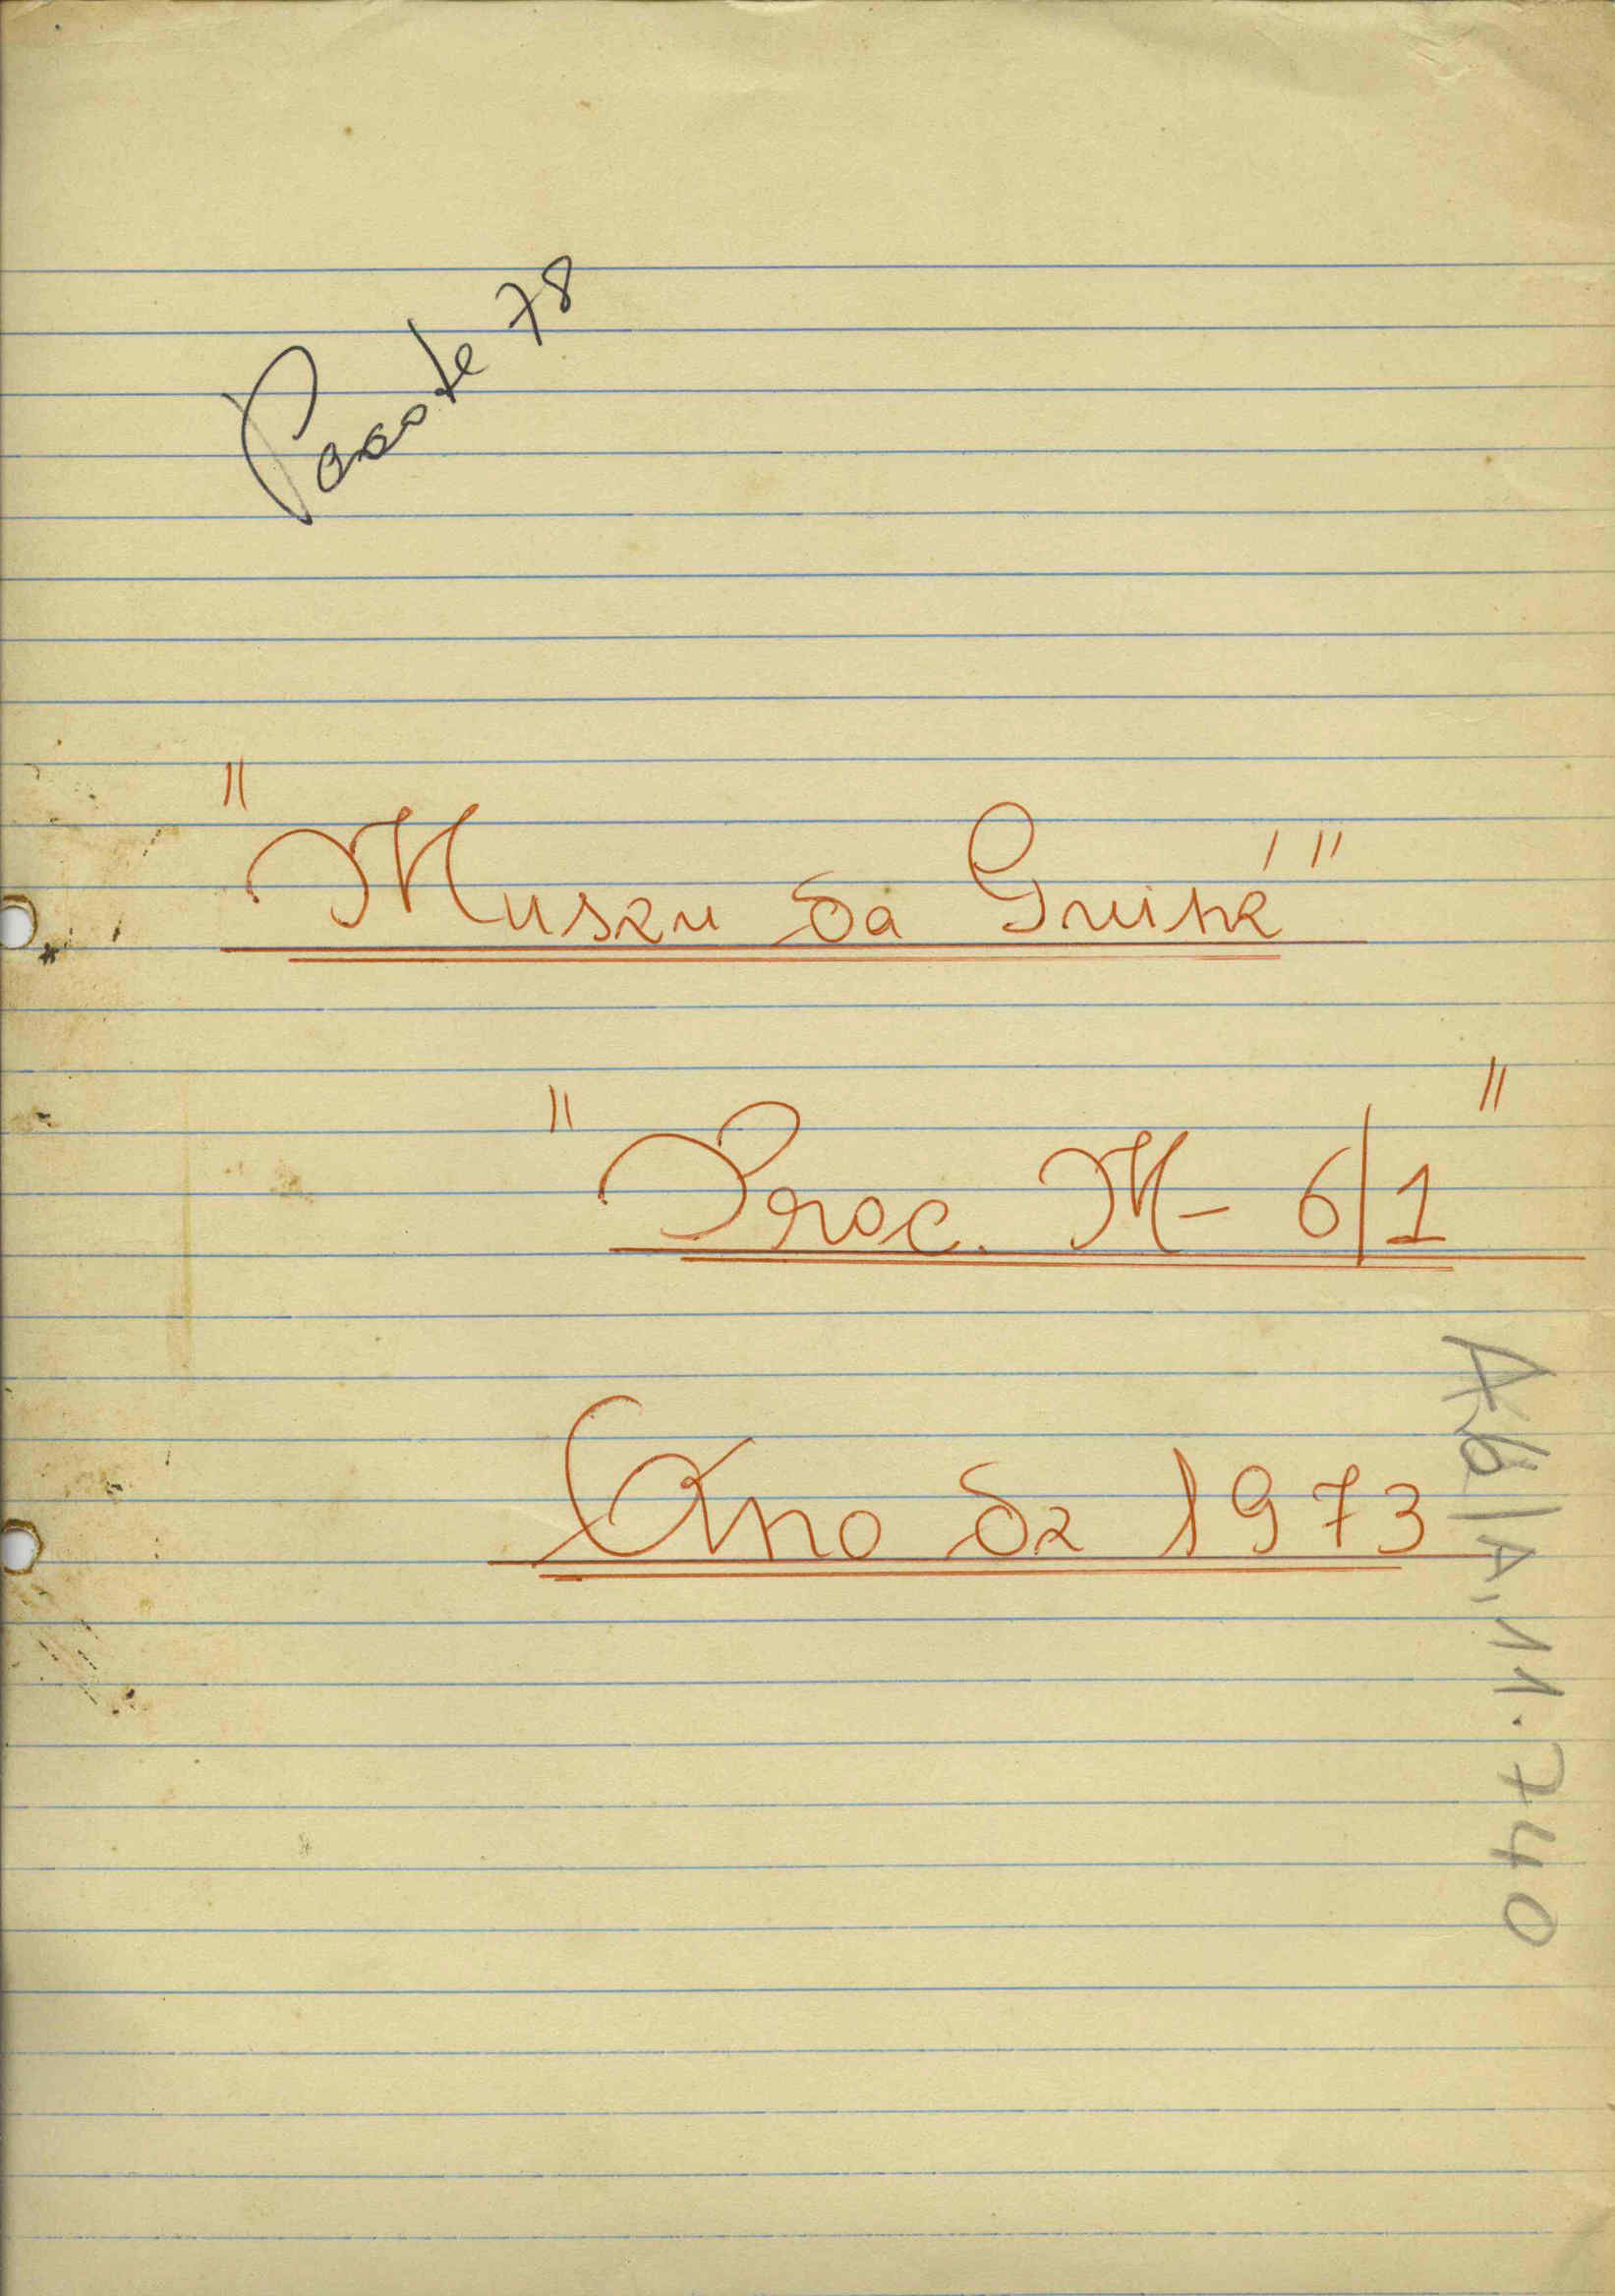 Pacote 78
"Museu da Guiné"
"Proc. M- 6/1"
Ano de 1973
A6/A,11.740